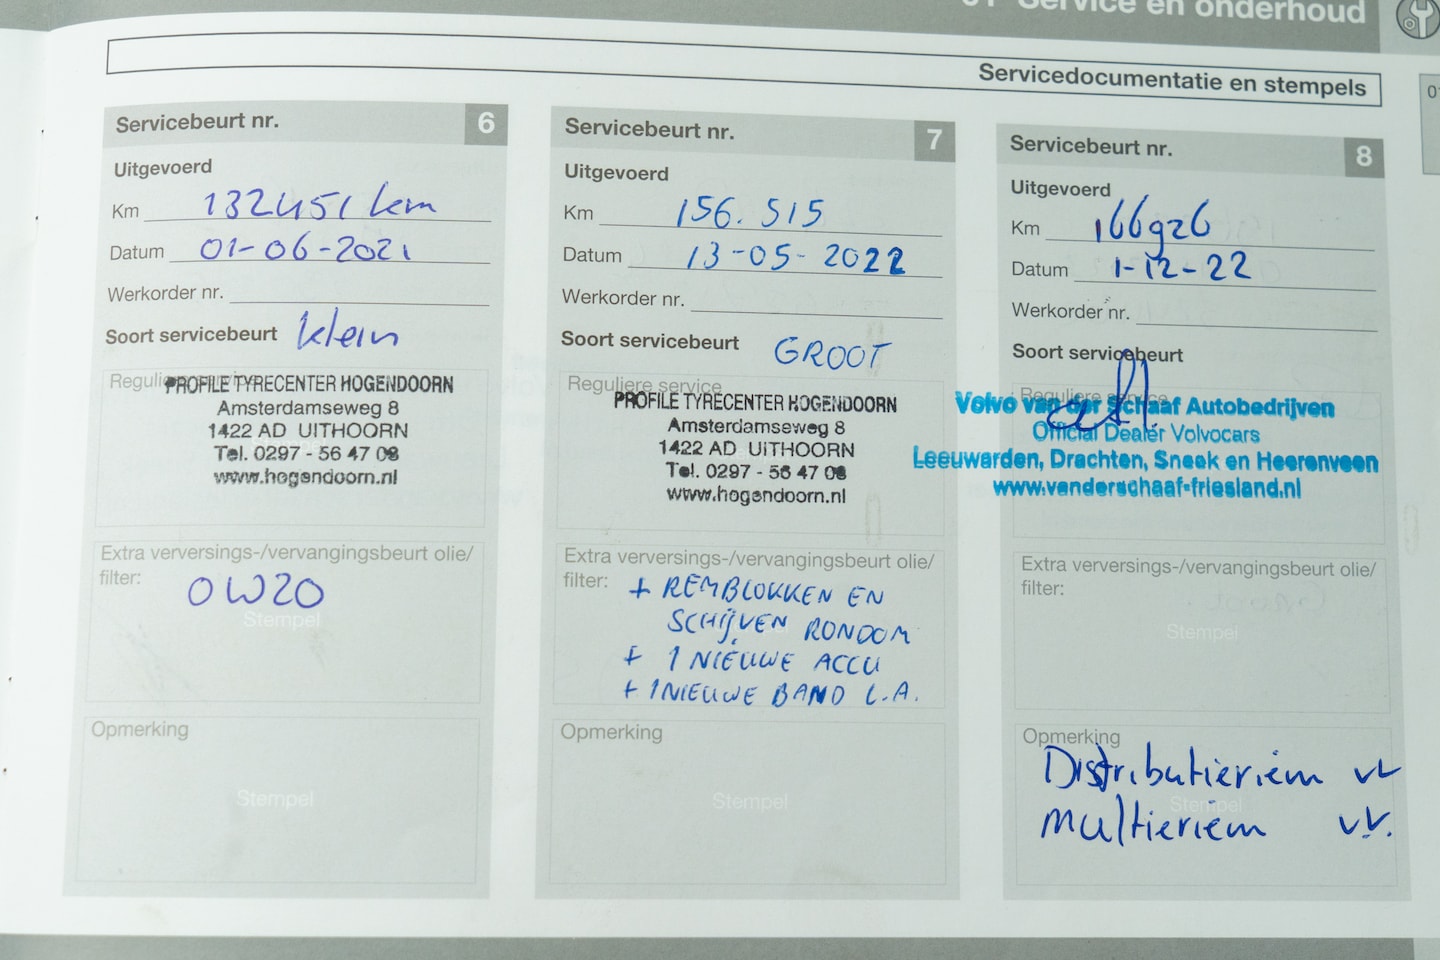 01 Service en onderhoud
Servicedocumentatie en stempels
Servicebeurt nr. 6
Uitgevoerd
Km 132451 km
Datum 01-06-2021
Werkorder nr.
Soort servicebeurt klein
Reguliere service
PROFILE TYRECENTER HOGENDOORN
Amsterdamseweg 8
1422 AD UITHOORN
Tel. 0297 - 56 47 08
www.hogendoorn.nl
Extra verversings-/vervangingsbeurt olie/
filter:
0W20
Stempel
Opmerking
Stempel
Servicebeurt nr. 7
Uitgevoerd
Km 156.515
Datum 13-05-2022
Werkorder nr.
Soort servicebeurt GROOT
Reguliere service
PROFILE TYRECENTER HOGENDOORN
Amsterdamseweg 8
1422 AD UITHOORN
Tel. 0297 - 56 47 08
www.hogendoorn.nl
Extra verversings-/vervangingsbeurt olie/
filter: + REMBLOKKEN EN
SCHIJVEN RONDOM
+ 1 NIEUWE ACCU
+ 1 NIEUWE BAND L.A.
Opmerking
Stempel
Servicebeurt nr. 8
Uitgevoerd
Km 166926
Datum 1-12-22
Werkorder nr.
Soort servicebeurt
Reguliere service
Volvo van der Schaaf Autobedrijven
Official Dealer Volvocars
Leeuwarden, Drachten, Sneek en Heerenveen
www.vanderschaaf-friesland.nl
Extra verversings-/vervangingsbeurt olie/
filter:
Stempel
Opmerking
Distributieriem vv
Stempel
multieriem v.v.